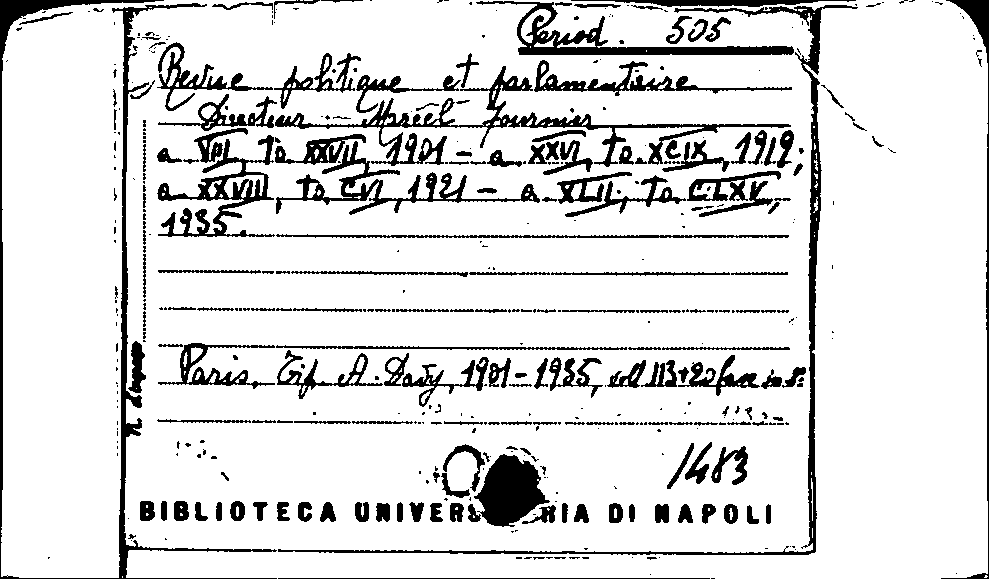 Period. 505
Revue politique et parlamentaire.
Directeur: Marcel Fournier
a. VIII, to. XXVII, 1901 – a. XXVI, to. XCIX, 1919;
a. XXVIII, to. CVI, 1921 – a. XLII; to. CLXV,
1935.
Paris, Tip. A. Davy, 1901-1935, voll 113+20 fasc in 8º
1483
BIBLIOTECA UNIVERSITARIA DI NAPOLI